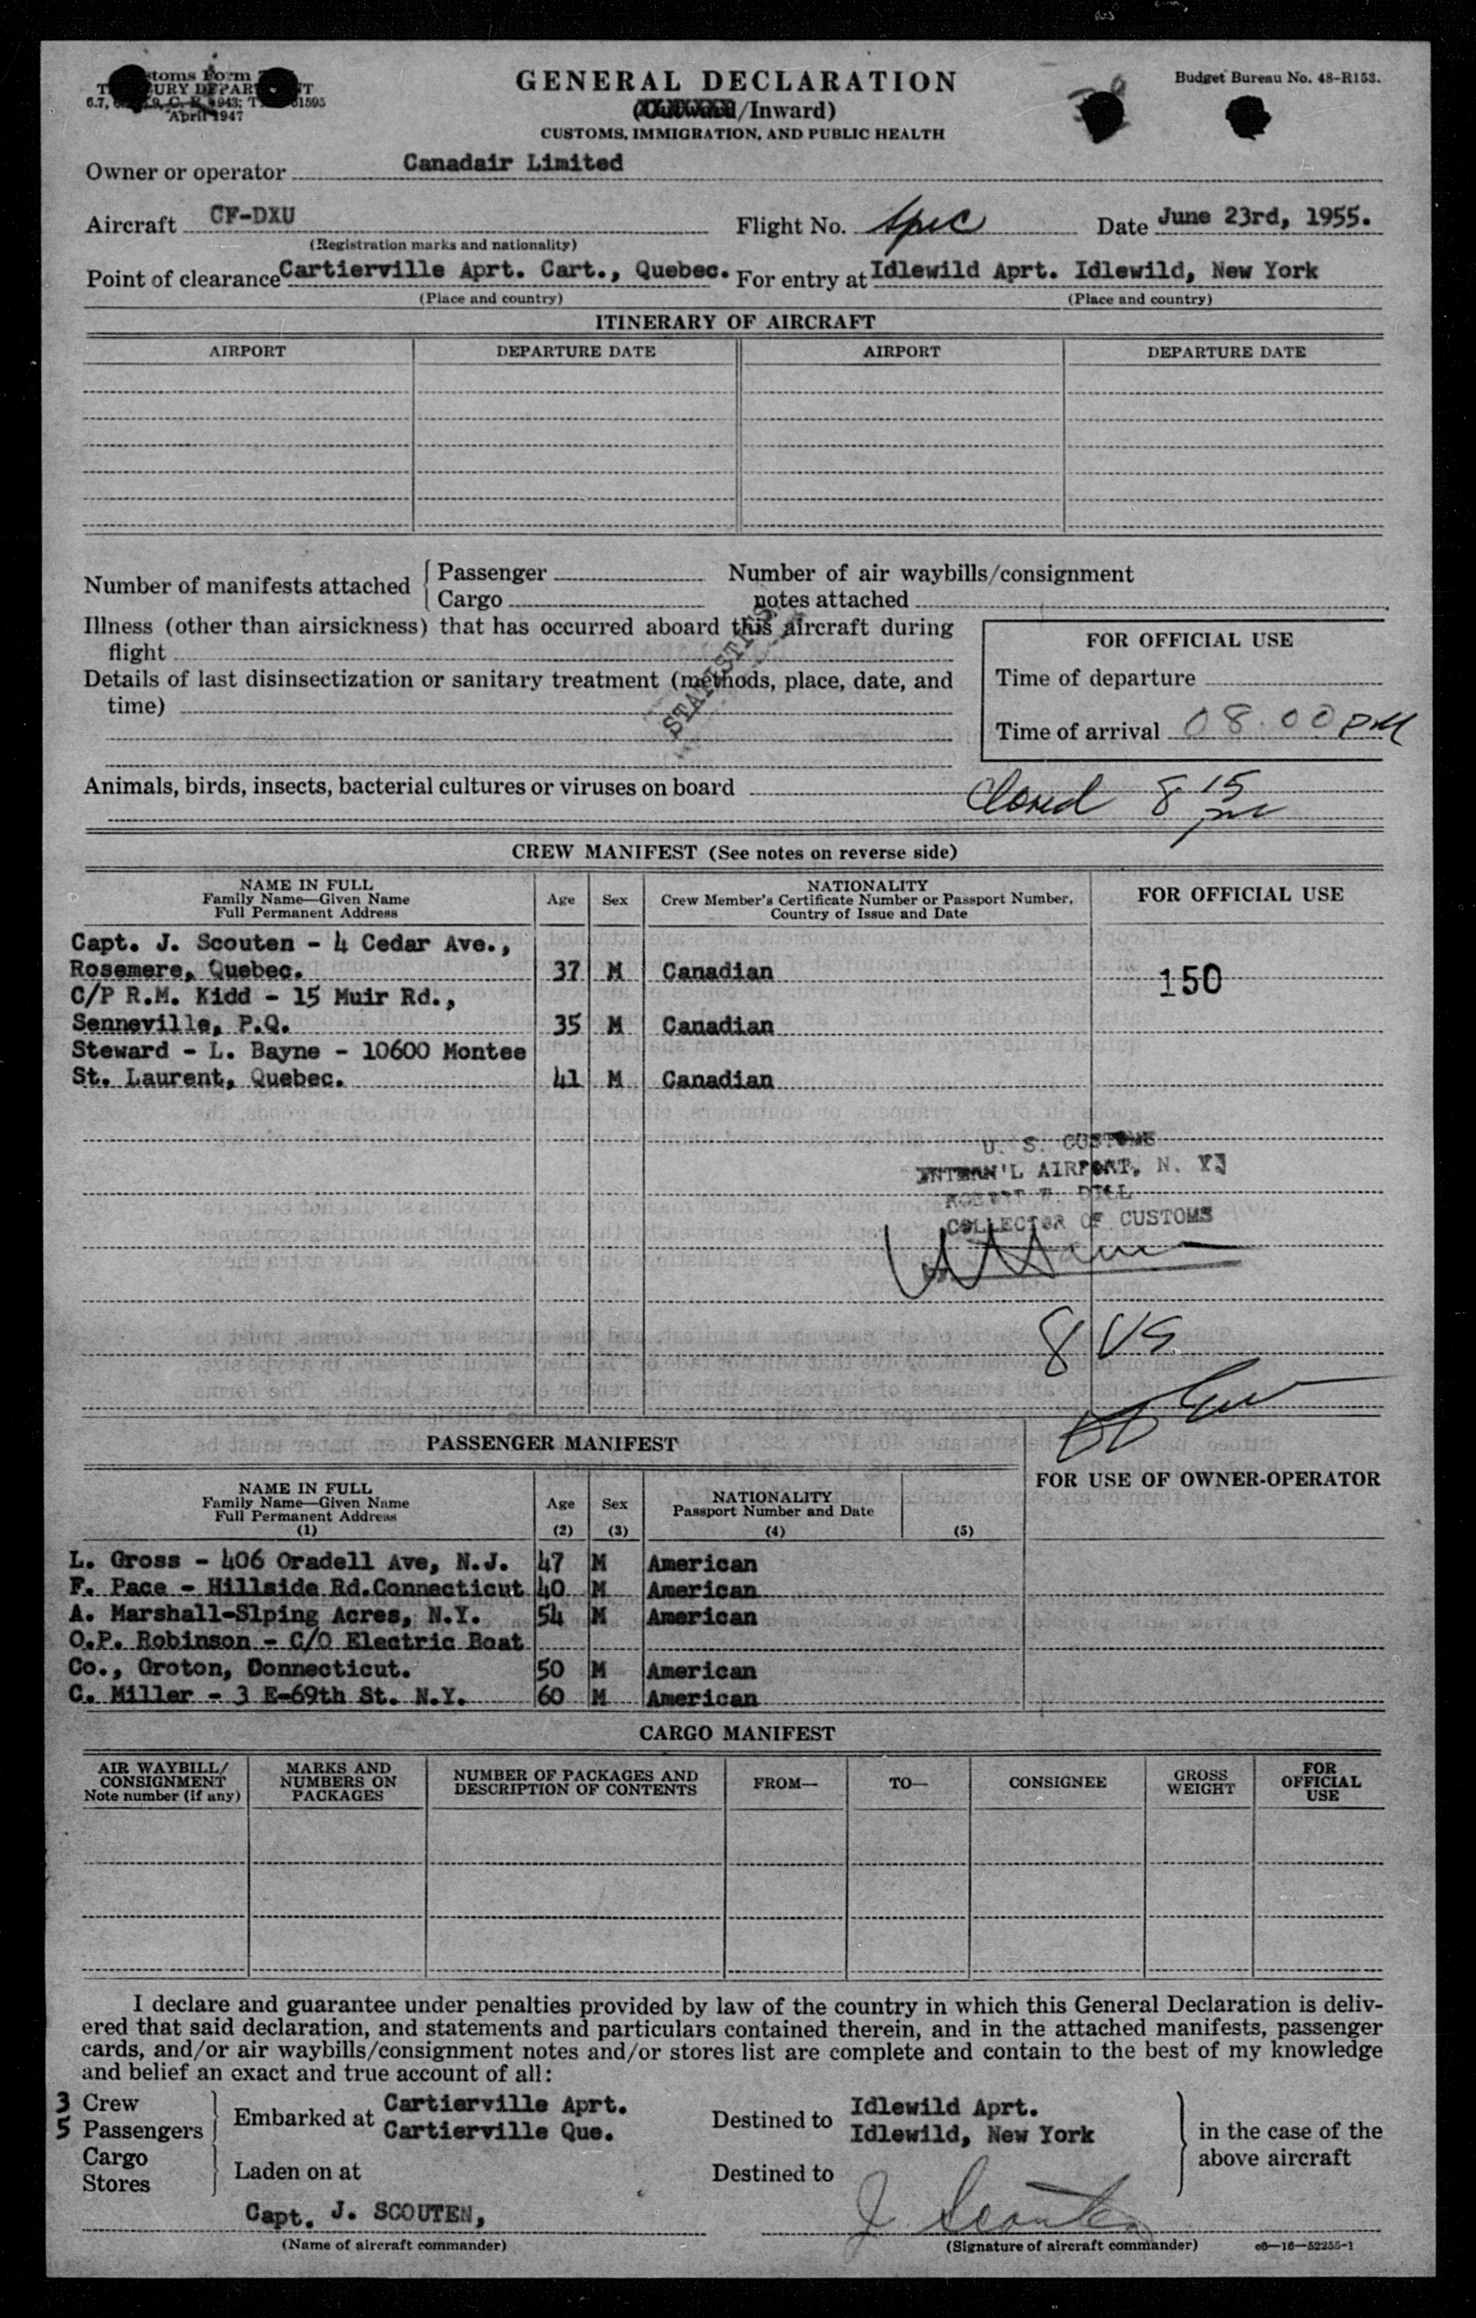 GENERAL DECLARATION
Budget Bureau No. 48-R153.
toms Form
April 1947
/Inward)
CUSTOMS, IMMIGRATION, AND PUBLIC HEALTH
Owner or operator Canadair Limited
Aircraft CF-DXU Flight No. Spec Date June 23rd, 1955.
(Registration marks and nationality)
Point of clearance Cartierville Aprt. Cart., Quebec. For entry at Idlewild Aprt. Idlewild, New York
(Place and country) (Place and country)
ITINERARY OF AIRCRAFT
AIRPORT DEPARTURE DATE AIRPORT DEPARTURE DATE
Number of manifests attached { Passenger Number of air waybills/consignment
Cargo notes attached
Illness (other than airsickness) that has occurred aboard this aircraft during
flight
Details of last disinsectization or sanitary treatment (methods, place, date, and
time)
FOR OFFICIAL USE
Time of departure
Time of arrival 08.00 PM
Animals, birds, insects, bacterial cultures or viruses on board
Closed 8 15 pm
CREW MANIFEST (See notes on reverse side)
NAME IN FULL
Family Name—Given Name
Full Permanent Address
Age Sex
NATIONALITY
Crew Member's Certificate Number or Passport Number,
Country of Issue and Date
FOR OFFICIAL USE
Capt. J. Scouten - 4 Cedar Ave.,
Rosemere, Quebec. 37 M Canadian 150
C/P R.M. Kidd - 15 Muir Rd.,
Senneville, P.Q. 35 M Canadian
Steward - L. Bayne - 10600 Montee
St. Laurent, Quebec. 41 M Canadian
U. S. CUSTOMS
INTERN'L AIRPORT, N. Y.
DILL
COLLECTOR OF CUSTOMS
8 US
PASSENGER MANIFEST
FOR USE OF OWNER-OPERATOR
NAME IN FULL
Family Name—Given Name
Full Permanent Address
(1)
Age
(2)
Sex
(3)
NATIONALITY
Passport Number and Date
(4) (5)
L. Gross - 406 Oradell Ave, N.J. 47 M American
F. Pace - Hillside Rd.Connecticut 40 M American
A. Marshall-Slping Acres, N.Y. 54 M American
O.P. Robinson - C/O Electric Boat
Co., Groton, Donnecticut. 50 M American
C. Miller - 3 E-69th St. N.Y. 60 M American
CARGO MANIFEST
AIR WAYBILL/
CONSIGNMENT
Note number (if any)
MARKS AND
NUMBERS ON
PACKAGES
NUMBER OF PACKAGES AND
DESCRIPTION OF CONTENTS
FROM— TO— CONSIGNEE
GROSS
WEIGHT
FOR
OFFICIAL
USE
I declare and guarantee under penalties provided by law of the country in which this General Declaration is deliv-
ered that said declaration, and statements and particulars contained therein, and in the attached manifests, passenger
cards, and/or air waybills/consignment notes and/or stores list are complete and contain to the best of my knowledge
and belief an exact and true account of all:
3 Crew Embarked at Cartierville Aprt. Destined to Idlewild Aprt.
5 Passengers Cartierville Que. Idlewild, New York in the case of the
Cargo above aircraft
Stores Laden on at Destined to
Capt. J. SCOUTEN, J Scouten
(Name of aircraft commander) (Signature of aircraft commander) c6—16—52255-1